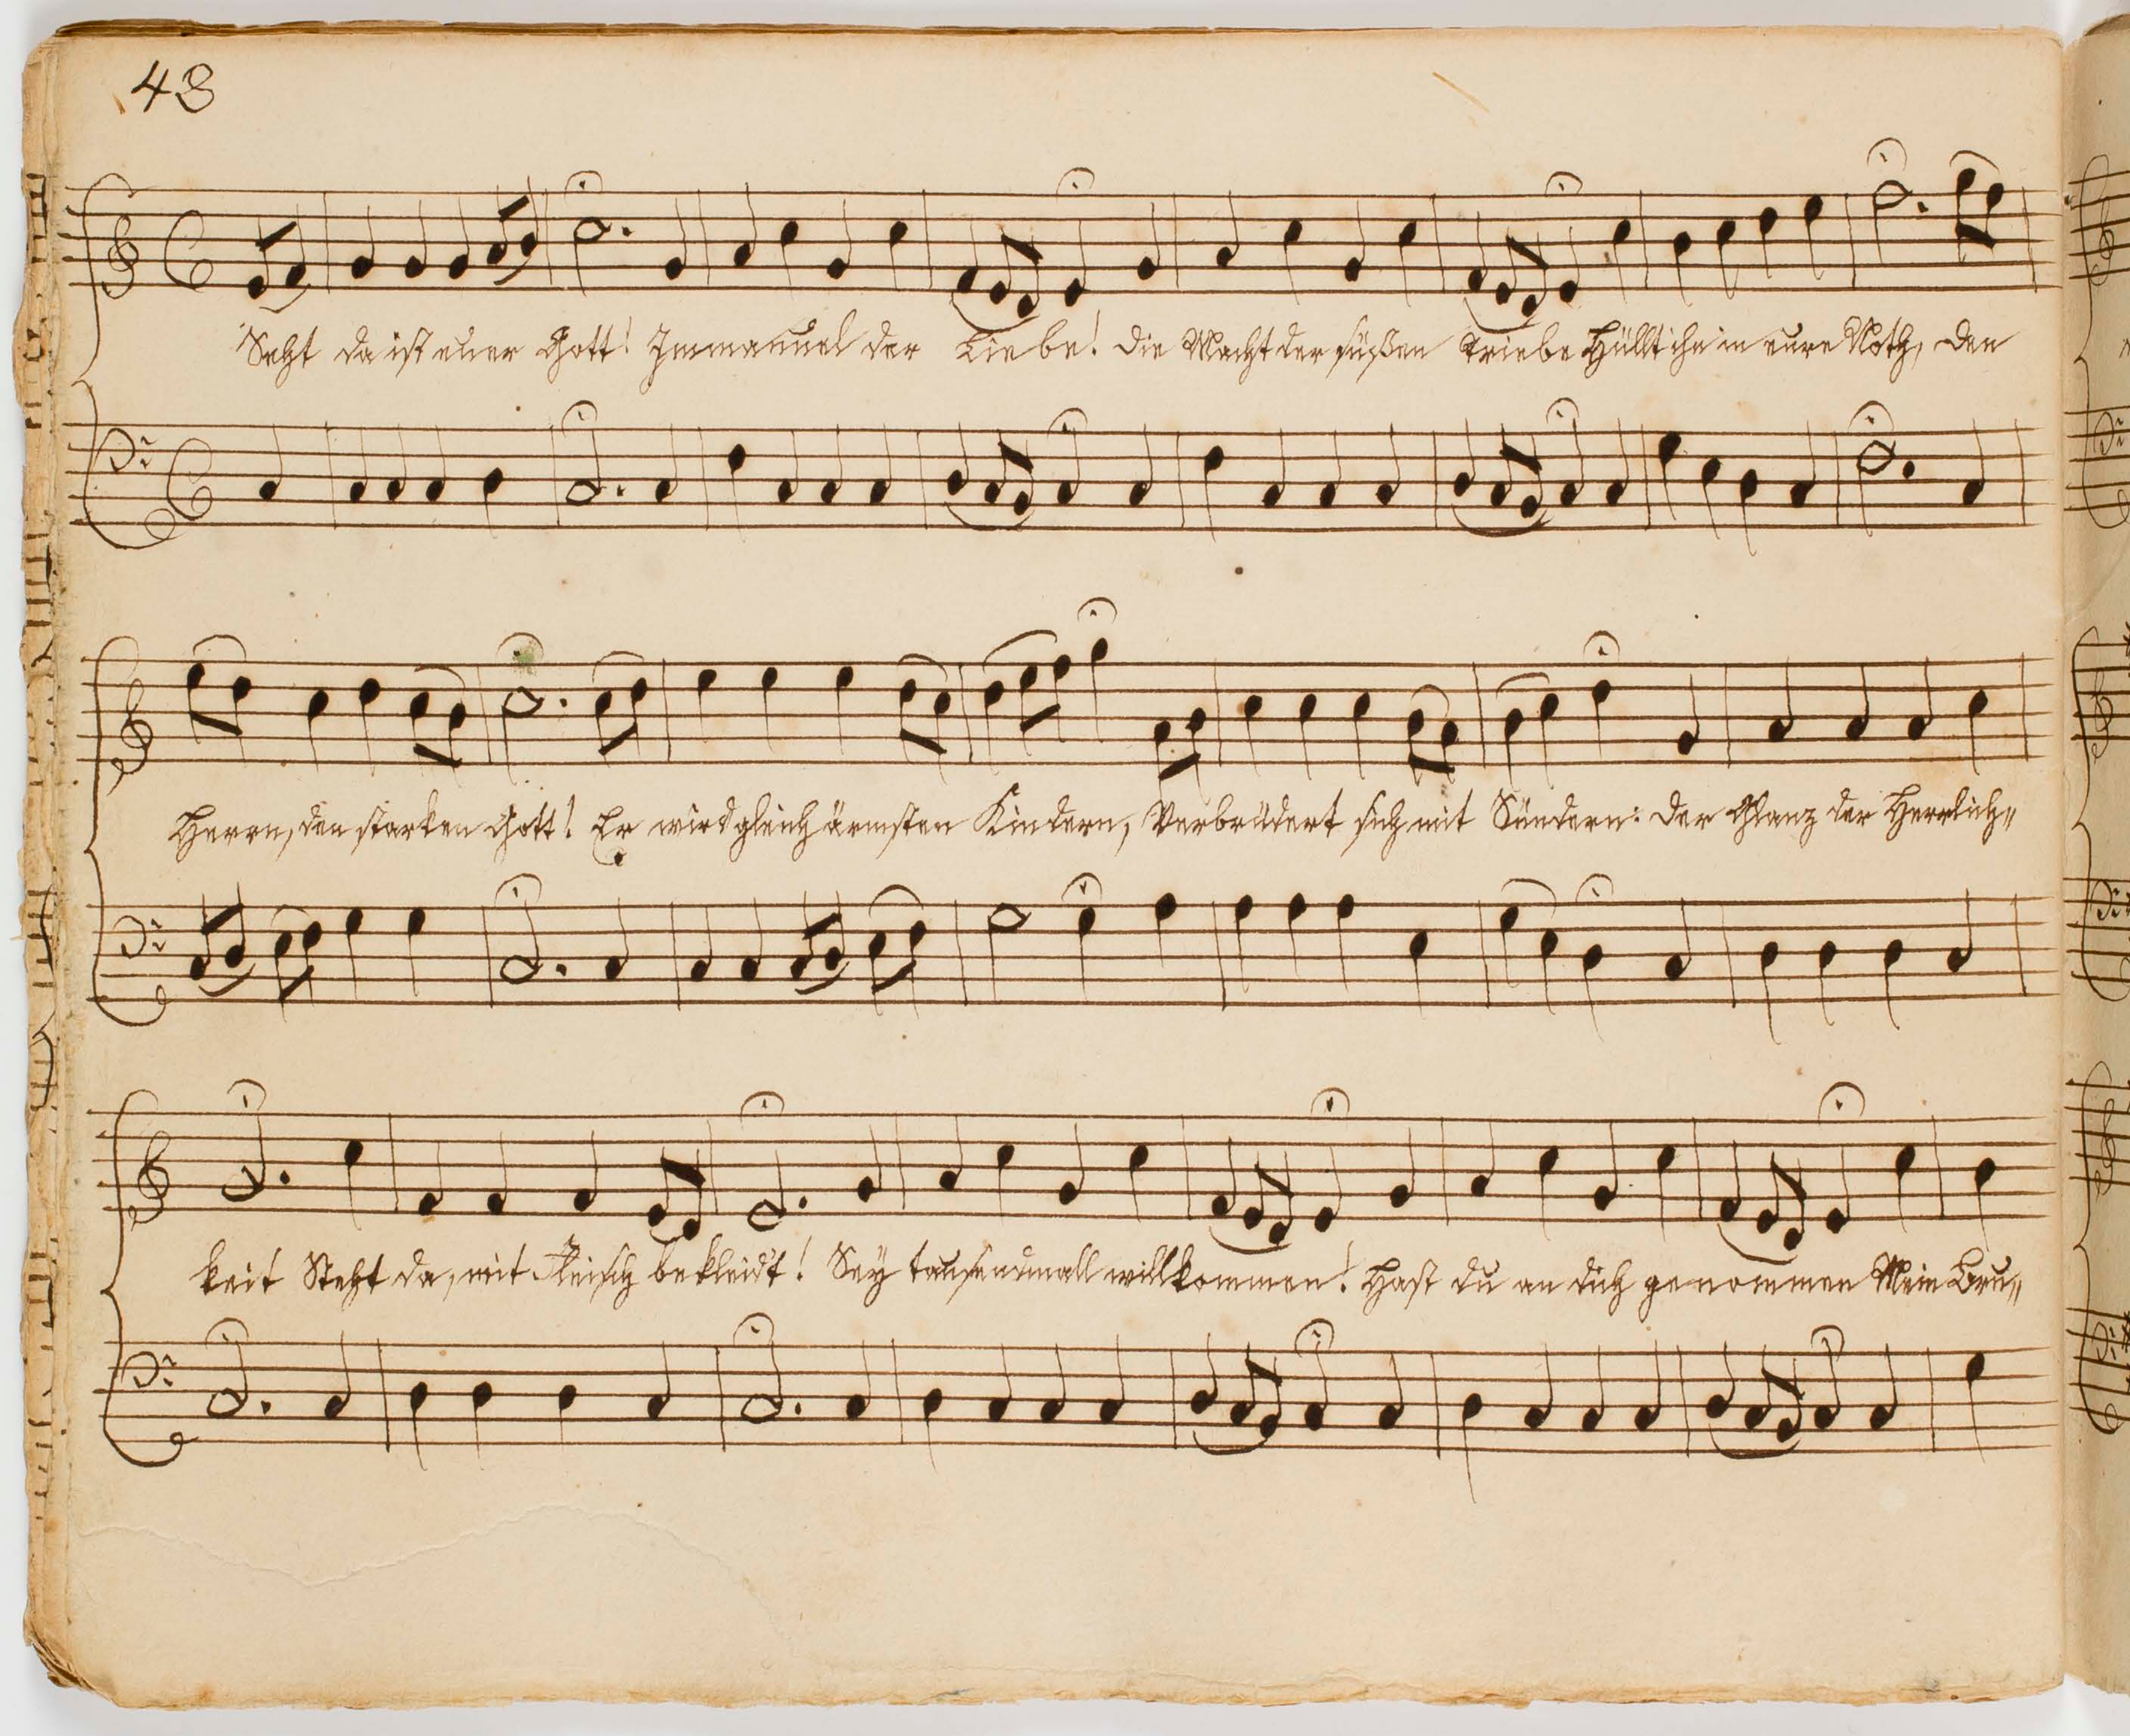 48
Seht da ist euer Gott! Immanuel der Liebe! Die Macht der süßen Triebe Hüllt ihn in eure Noth, Den
Herrn, den starken Gott! Er wird gleich ärmsten Kindern, Verbrüdert sich mit Sündern: Der Glanz der Herrlich„
keit Steht da, mit Fleisch bekleid't! Sey tausendmall willkommen! Hast du an dich genommen Mein Bru„